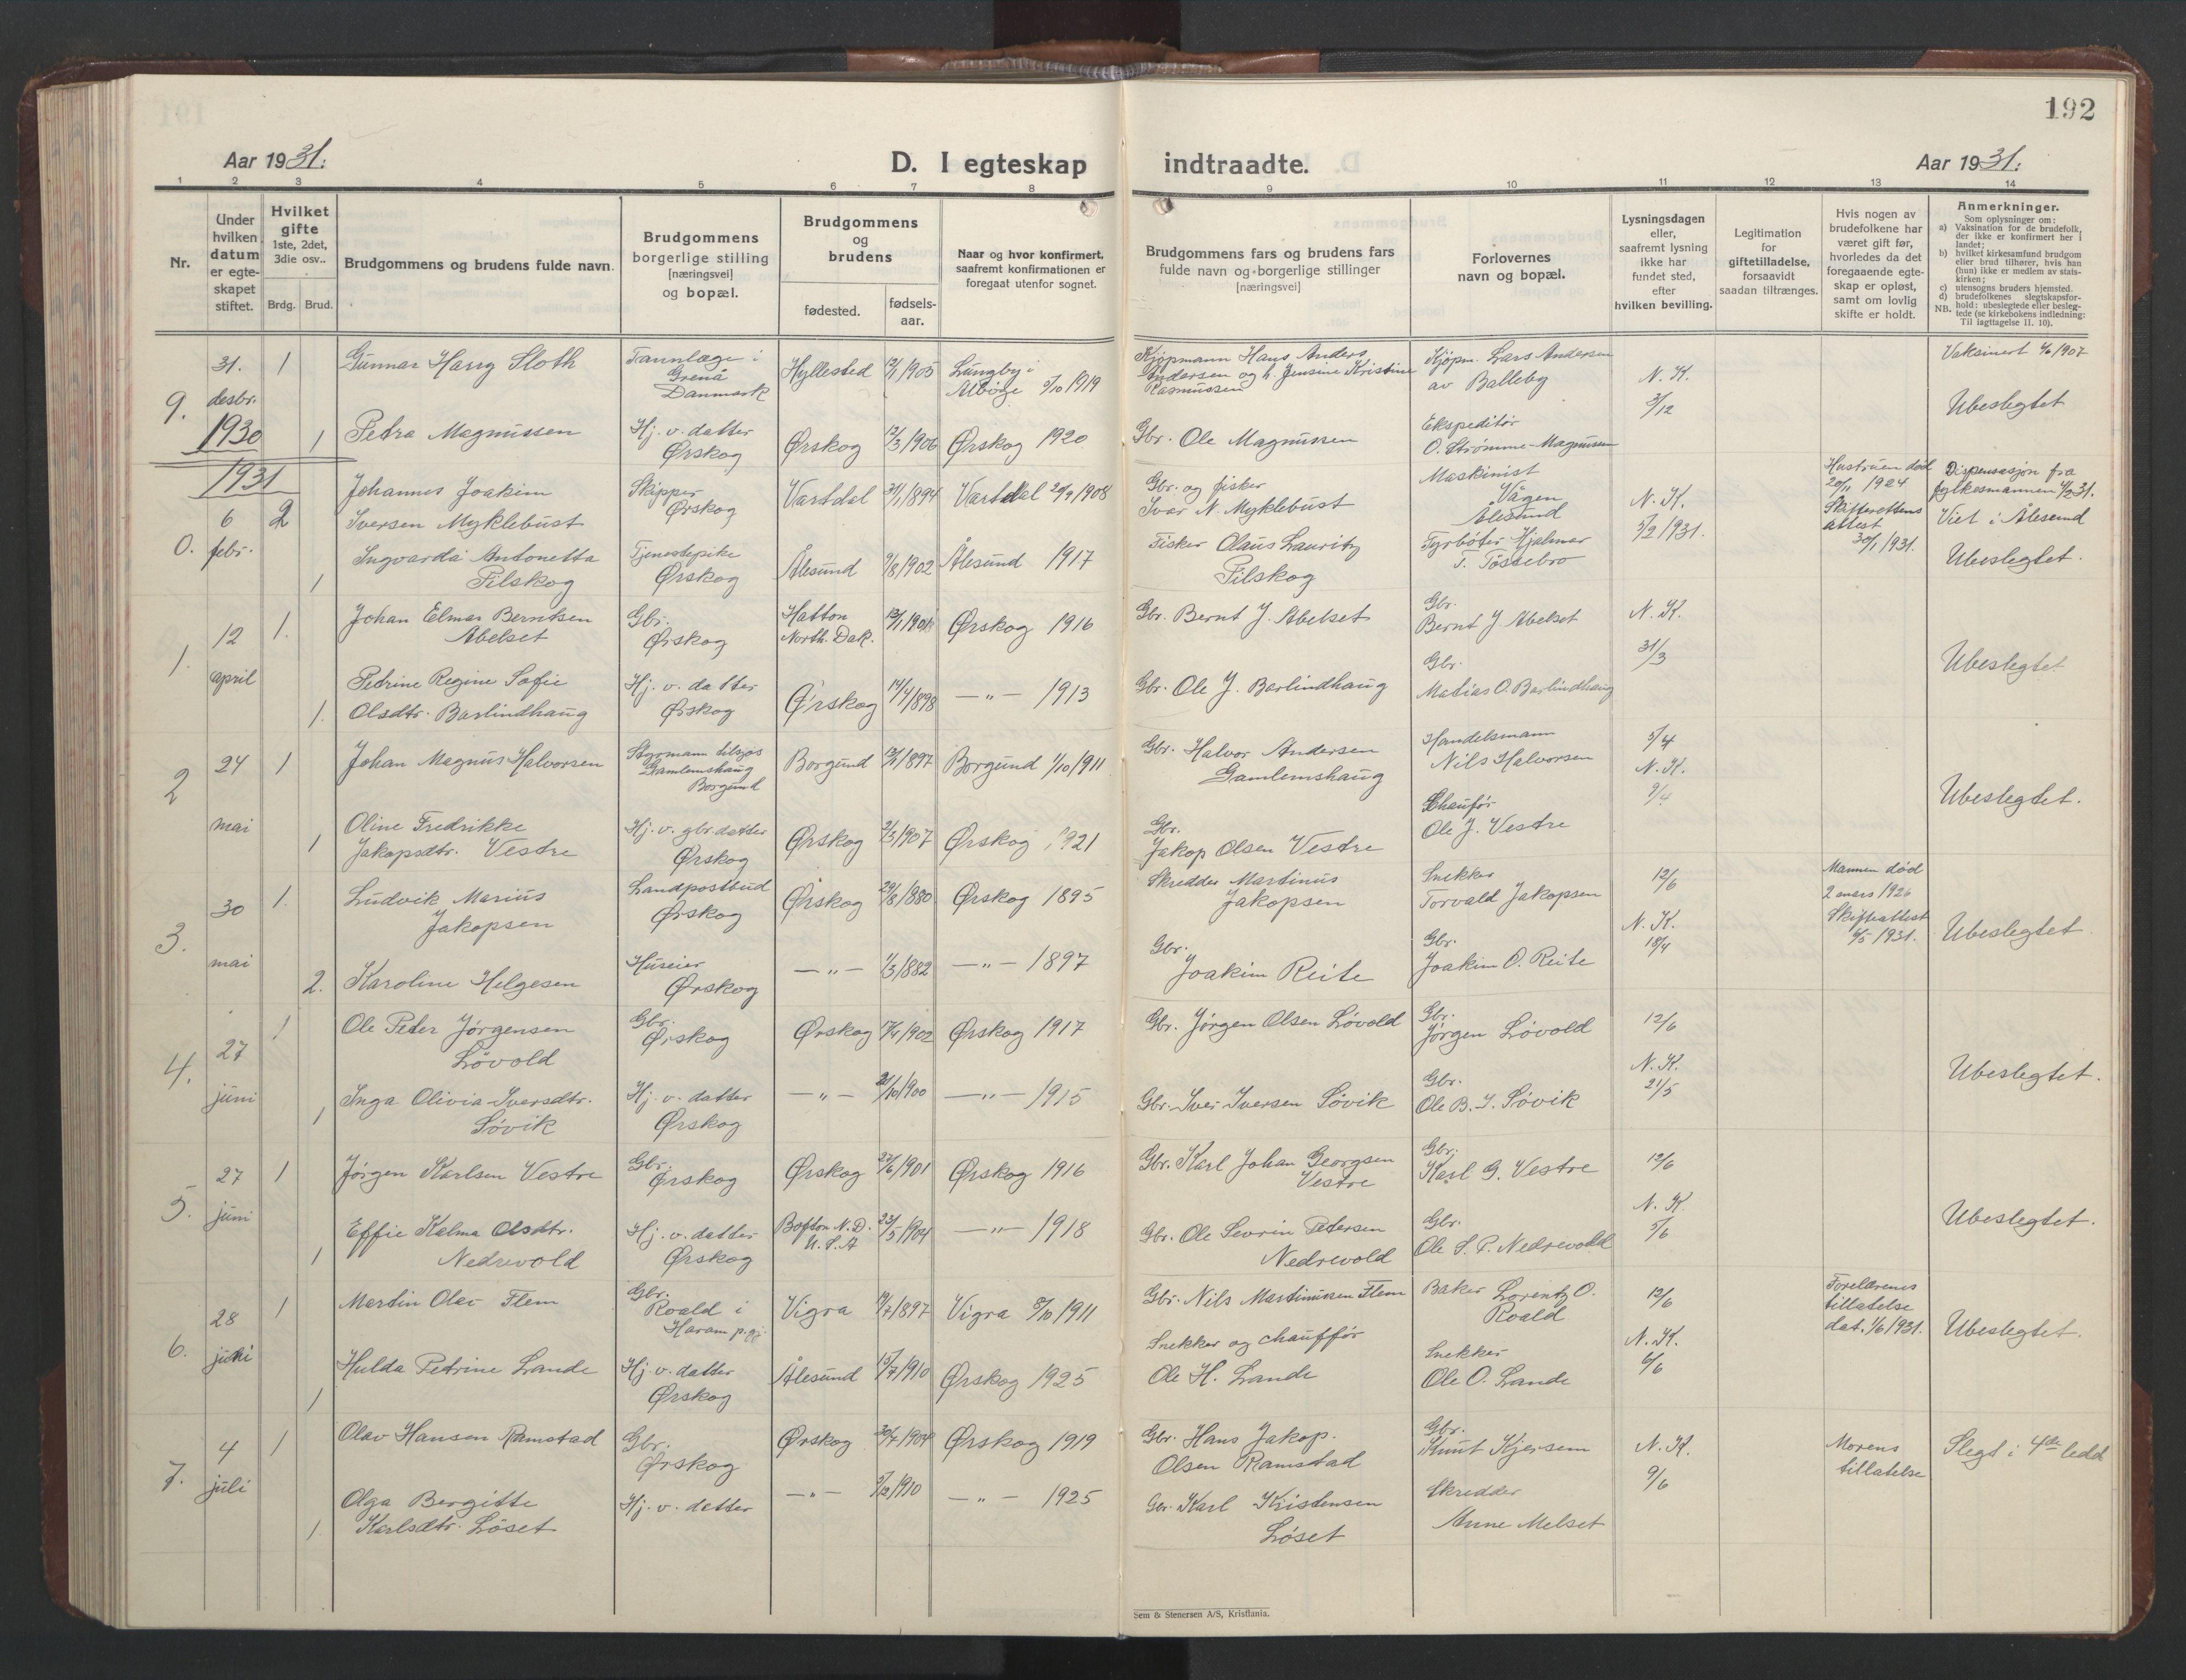 192
Aar 1931:
D. I egteskap indtraadte.
Aar 1931:
1 2 3 4 5 6 7 8 9 10 11 12 13 14
Nr.
Under
hvilken
datum
er egte-
skapet
stiftet.
Hvilket
gifte
1ste, 2det,
3die osv..
Brdg. Brud.
Brudgommens og brudens fulde navn.
Brudgommens
borgerlige stilling
[næringsvei]
og bopæl.
Brudgommens
og
brudens
fødested.
fødsels-
aar.
Naar og hvor konfirmert,
saafremt konfirmationen er
foregaat utenfor sognet.
Brudgommens fars og brudens fars
fulde navn og borgerlige stillinger
[næringsvei]
Forlovernes
navn og bopæl.
Lysningsdagen
eller,
saafremt lysning
ikke har
fundet sted,
efter
hvilken bevilling.
Legitimation
for
giftetilladelse,
forsaavidt
saadan tiltrænges.
Hvis nogen av
brudefolkene har
været gift før,
hvorledes da det
foregaaende egte-
skap er opløst,
samt om lovlig
skifte er holdt.
Anmerkninger.
Som oplysninger om:
a) Vaksination for de brudefolk,
der ikke er konfirmert her i
landet;
b) hvilket kirkesamfund brudgom
eller brud tilhører, hvis han
(hun) ikke er medlem av stats-
kirken;
c) utensogns bruders hjemsted.
d) brudefolkenes slegtskapsfor-
hold: ubeslegtede eller besleg-
tede (se kirkebokens indledning:
NB. Til iagttagelse II. 10).
9.
31.
desbr.
1930
1
Gunnar Harry Sloth
Tannlæge i
Grenå
Danmark
Hyllested
12/1 1905
Lyngby i
Albøge 5/10 1919
Kjøpmann Hans Anders
Andersen og h. Jensine Kristine
Rasmussen
Kjøpm. Lars Andersen
av Balleby
N. K.
3/12
Vaksinert 4/6 1907
Ubeslegtet
1
Petra Magnussen
Hj. v. datter
Ørskog
Ørskog
12/3 1906
Ørskog 1920
Gbr. Ole Magnussen
Ekspeditør
O. Strømme-Magnussen
1931
0.
6
febr.
2
Johannes Joakim
Iversen Myklebust
Skipper
Ørskog
Vartdal
31/1 1894
Vartdal 20/9 1908
Gbr. og fisker
Ivar N. Myklebust
Maskinist
Vågen
Ålesund
N. K.
5/2 1931.
Hustruen død
20/11 1924
Skifterettens
attest
30/1 1931.
Dispensasjon fra
fylkesmannen 4/2 31.
Viet i Ålesund
Ubeslegtet.
1
Ingvarda Antonetta
Pilskog
Tjenestepike
Ørskog
Ålesund
9/8 1902
Ålesund 1917
Fisker Olaus Lauritz
Pilskog
Fyrbøter Hjalmar
T. Tössebro
1.
12
april
1.
Johan Elmar Berntsen
Abelset
Gbr.
Ørskog
Hatton
North. Dak.
Ørskog 1916
Gbr. Bernt J. Abelset
Gbr.
Bernt J. Abelset
N. K.
31/3
Ubeslegtet
1.
Petrine Regine Sofie
Olsdtr. Barlindhaug
Hj. v. datter
Ørskog
Ørskog
14/4 1898
— " — 1913
Gbr. Ole J. Barlindhaug
Gbr.
Matias O. Barlindhaug
2
24
mai
1
Johan Magnus Halvorsen
Styrmann tilsjøs
Gamlemshaug
Borgund
Borgund
Borgund 1/10 1911
Gbr. Halvor Andersen
Gamlemshaug
Handelsmann
Nils Halvorsen
5/4
N. K.
9/4
Ubeslegtet.
1
Oline Fredrikke
Jakopsdtr. Vestre
Hj. v. gbr. datter
Ørskog
Ørskog
2/3 1907
Ørskog 1921
Gbr.
Jakop Olsen Vestre
Chaufør
Ole J. Vestre
3.
30
mai
1.
Ludvik Marius
Jakopsen
Landpostbud
Ørskog
Ørskog
29/8 1880
Ørskog 1895
Skredder Martinus
Jakopsen
Snekker
Torvald Jakopsen
12/6
N. K.
18/4
Mannen død
2 mars 1926
Skifteattest
6/5 1931.
Ubeslegtet
2.
Karoline Helgesen
Huseier
Ørskog
— " —
1/3 1882
— " — 1897
Gbr.
Joakim Reite
Gbr.
Joakim O. Reite
4.
27
juni
1
Ole Peter Jørgensen
Løvold
Gbr.
Ørskog
Ørskog
17/4 1902
Ørskog 1917
Gbr. Jørgen Olsen Løvold
Gbr.
Jørgen Løvold
12/6
N. K.
21/5
Ubeslegtet.
1
Inga Olivia Iversdtr.
Søvik
Hj. v. datter
Ørskog
— " —
21/10 1900
— " — 1915
Gbr. Iver Iversen Søvik
Gbr.
Ole B. I. Søvik
5.
27
juni
1
Jørgen Karlsen Vestre
Gbr.
Ørskog
Ørskog
22/6 1901
Ørskog 1916
Gbr. Karl Johan Georgsen
Vestre
Gbr.
Karl G. Vestre
12/6
N. K.
5/6
Ubeslegtet.
1
Effie Kalma Olsdtr.
Nedrevold
Hj. v. datter
Ørskog
N. D.
U. S. A
23/5 1904
— " — 1918
Gbr. Ole Sevrin Petersen
Nedrevold
Gbr.
Ole S. P. Nedrevold
6.
28
juni
1
Martin Olav Flem
Gbr.
Roald i
Haram p. gj.
Vigra
Vigra 8/10 1911
Gbr. Nils Martinusen Flem
Baker Lorentz O.
Roald
12/6
N. K.
6/6
Forelærenes
tillatelse
dat. 1/6 1931.
Ubeslegtet.
1
Hulda Petrine Lande
Hj. v. datter
Ørskog
Ålesund
15/7 1910
Ørskog 1925
Snekker og chauffør
Ole H. Lande
Snekker
Ole O. Lande
7.
4
juli
1
Olav Hansen Ramstad
Gbr.
Ørskog
Ørskog
30/7 1904
Ørskog 1919
Gbr. Hans Jakop.
Olsen Ramstad
Gbr.
Knut Kjersem
N. K.
9/6
Morens
tillatelse
Slegt i 4de ledd
1.
Olga Bergitte
Karlsdtr. Løset
Hj. v. datter
— " —
— " — 1925
Gbr. Karl Kristensen
Løset
Skredder
Anne Melset
Sem & Stenersen A/S, Kristiania.